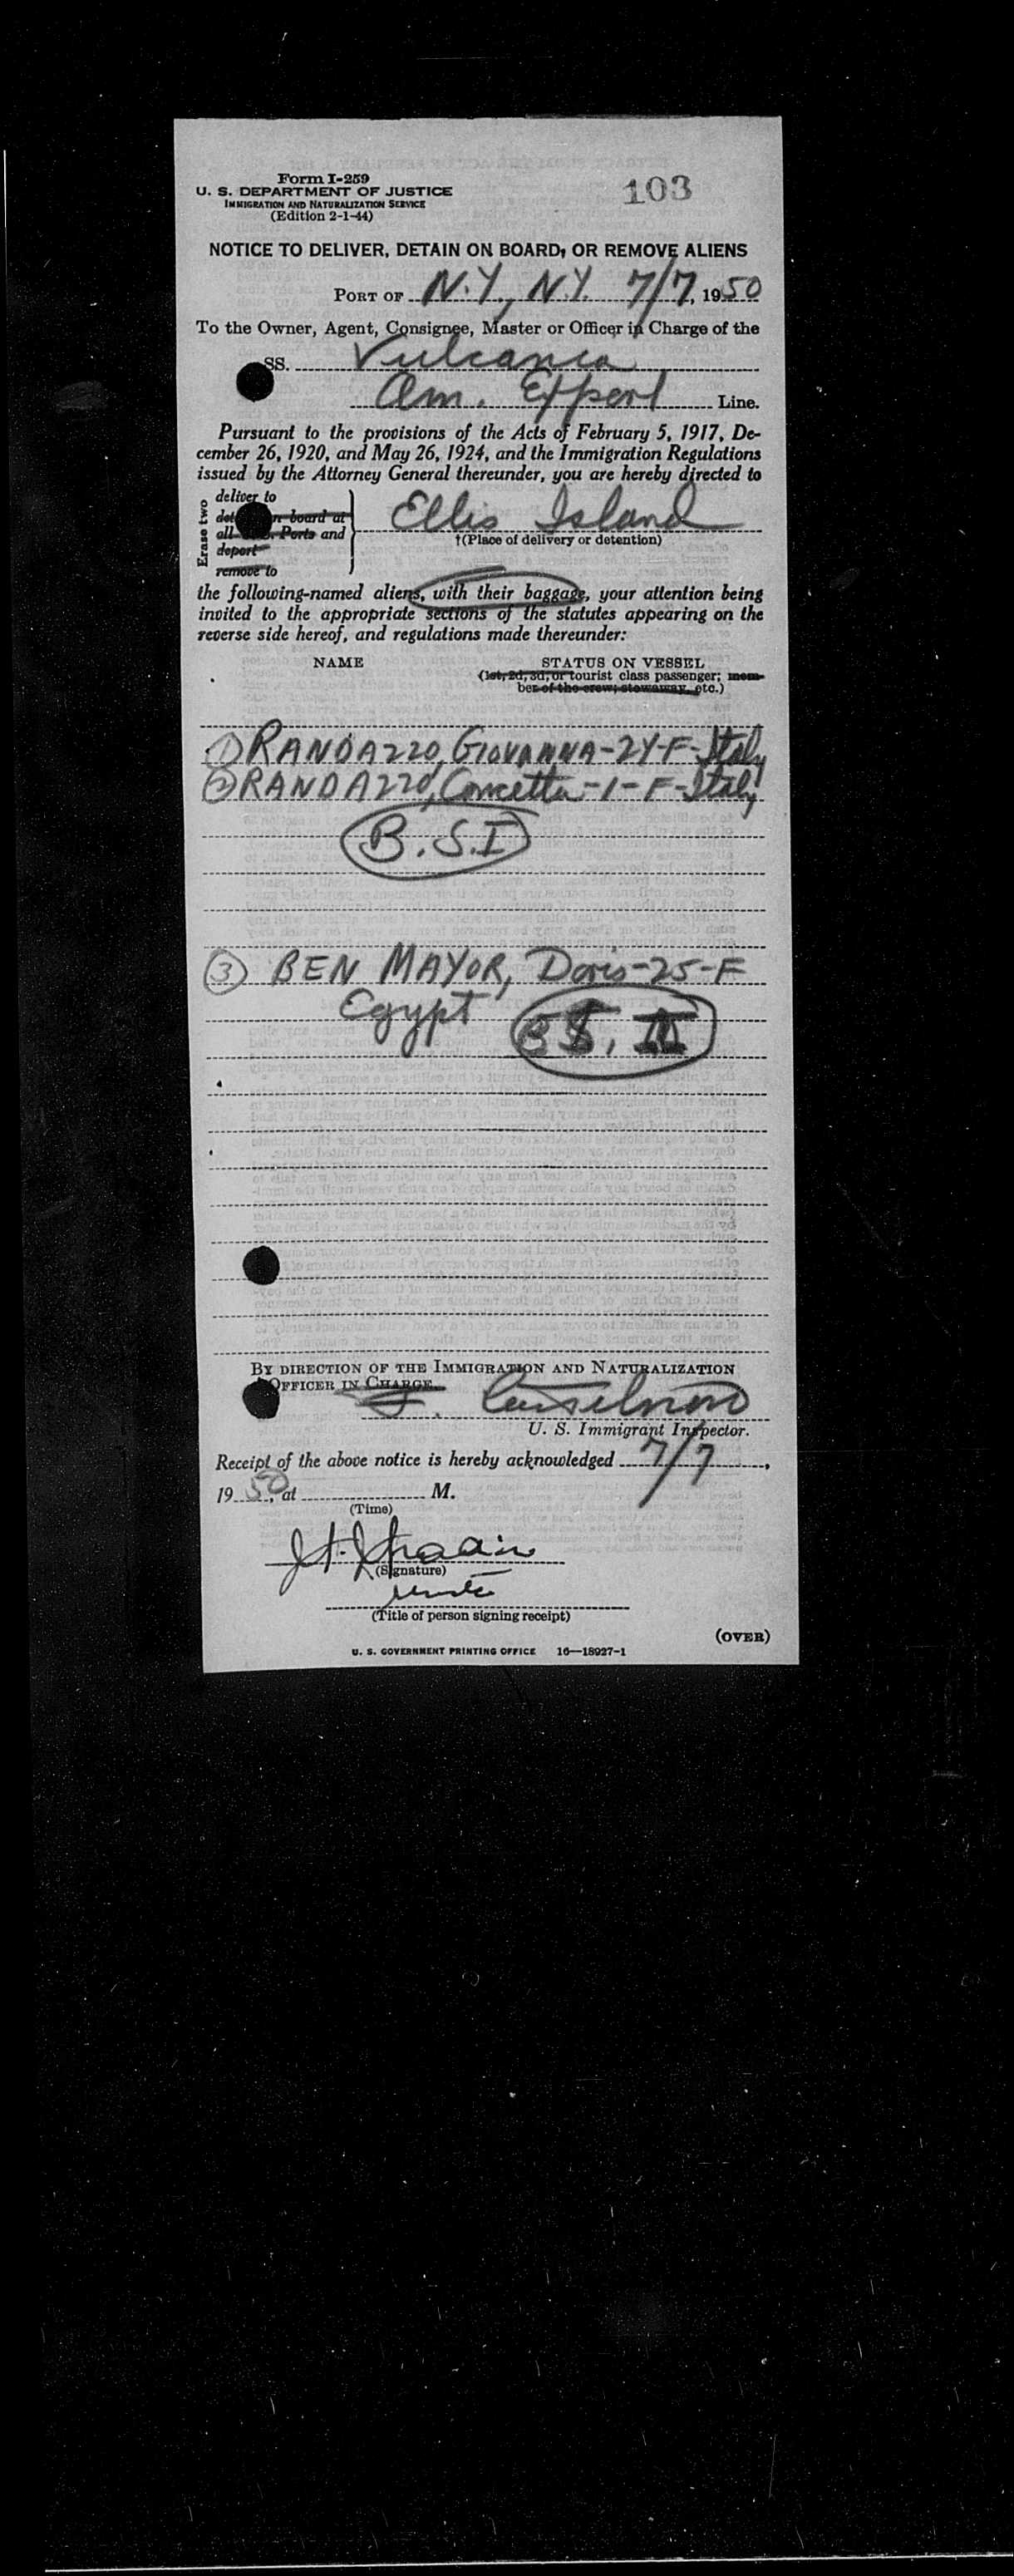 Form I-259
U. S. DEPARTMENT OF JUSTICE
IMMIGRATION AND NATURALIZATION SERVICE
(Edition 2-1-44)
103
NOTICE TO DELIVER, DETAIN ON BOARD, OR REMOVE ALIENS
PORT OF N.Y., N.Y. 7/7, 1950
To the Owner, Agent, Consignee, Master or Officer in Charge of the
SS. Vulcania
Am. Export Line.
Pursuant to the provisions of the Acts of February 5, 1917, De-
cember 26, 1920, and May 26, 1924, and the Immigration Regulations
issued by the Attorney General thereunder, you are hereby directed to
Erase two
deliver to
on board at
all Ports and
deport
remove to
Ellis Island
†(Place of delivery or detention)
the following-named aliens, with their baggage, your attention being
invited to the appropriate sections of the statutes appearing on the
reverse side hereof, and regulations made thereunder:
NAME
STATUS ON VESSEL
(1st, 2d, 3d, or tourist class passenger; mem-
ber of the crew; stowaway, etc.)
① RANDAZZO, GIOVANNA-24-F-Italy
② RANDAZZO, Concetta-1-F-Italy
B.S.I
③ BEN MAYOR, Doris-25-F
Egypt
BY DIRECTION OF THE IMMIGRATION AND NATURALIZATION
OFFICER IN CHARGE.
U. S. Immigrant Inspector.
Receipt of the above notice is hereby acknowledged 7/7,
1950, at M.
(Time)
(Signature)
(Title of person signing receipt)
(OVER)
U. S. GOVERNMENT PRINTING OFFICE 16—18927-1